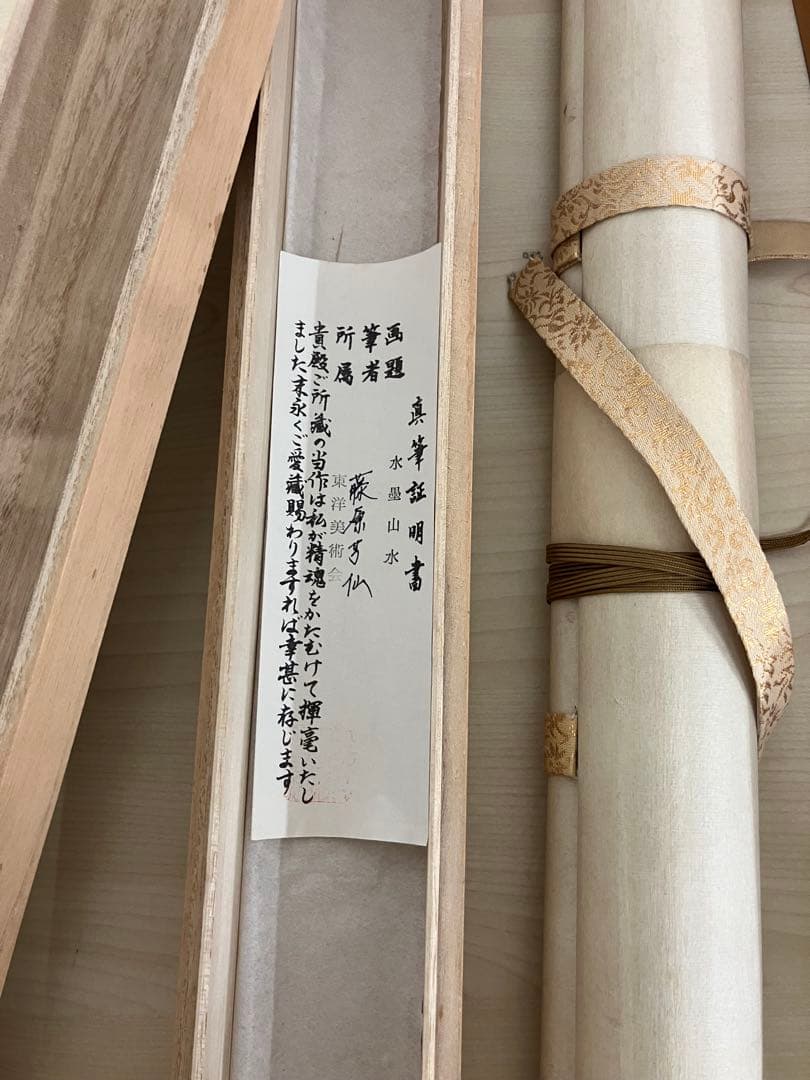 真筆証明書
画題 水墨山水
筆者 藤原芳仙
所属 東洋美術会
貴殿ご所蔵の当作は私が精魂をかたむけて揮毫いたし
ました末永くご愛蔵賜わりますれば幸甚に存じます